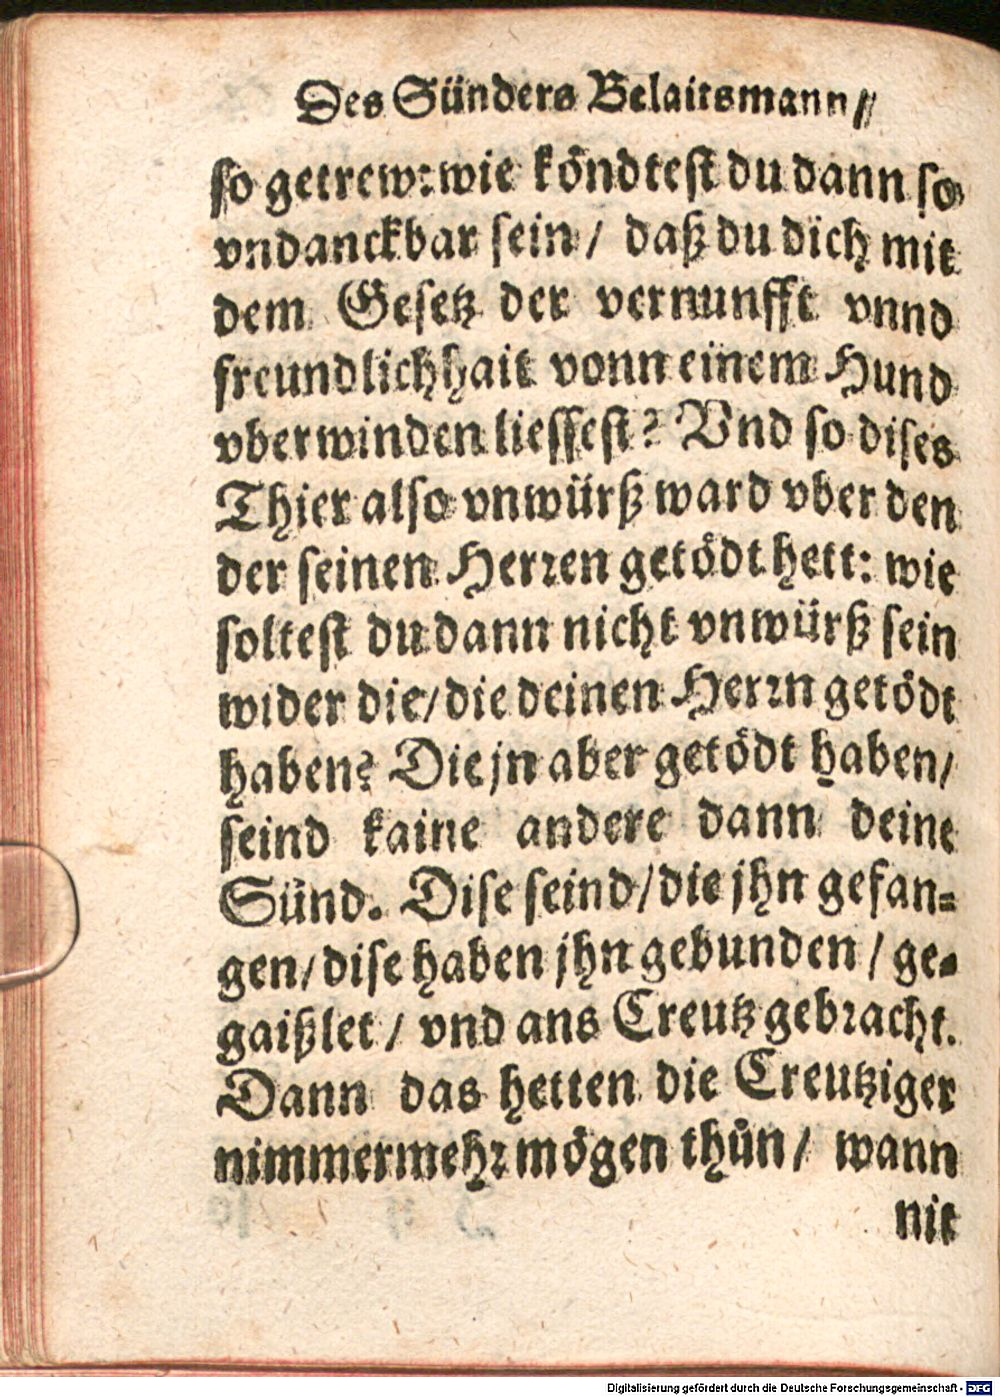 Des Sünders Belaitsmann/
so getrew: wie köndtest du dann so
vndanckbar sein / daß du dich mit
dem Gesetz der vernunfft vnnd
freundlichhait vonn einem Hund
vberwinden liessest? Vnd so dises
Thier also vnwürß ward vber den
der seinen Herren getödt hett: wie
soltest du dann nicht vnwürß sein
wider die/die deinen Herrn getödt
haben? Die jn aber getödt haben/
seind kaine andere dann deine
Sünd. Dise seind/die jhn gefan-
gen/dise haben jhn gebunden / ge-
gaißlet / vnd ans Creutz gebracht.
Dann das hetten die Creutziger
nimmermehr mögen thůn / wann
nit
Digitalisierung gefördert durch die Deutsche Forschungsgemeinschaft - DFG